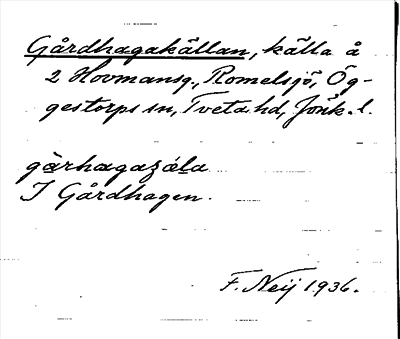 Gårdhagakällan, källa å
2 Hovmansg., Romelsjö, Ög-
gestorps sn, Tveta hd, Jönk. l.
I Gårdhagen.
F. Neij 1936.